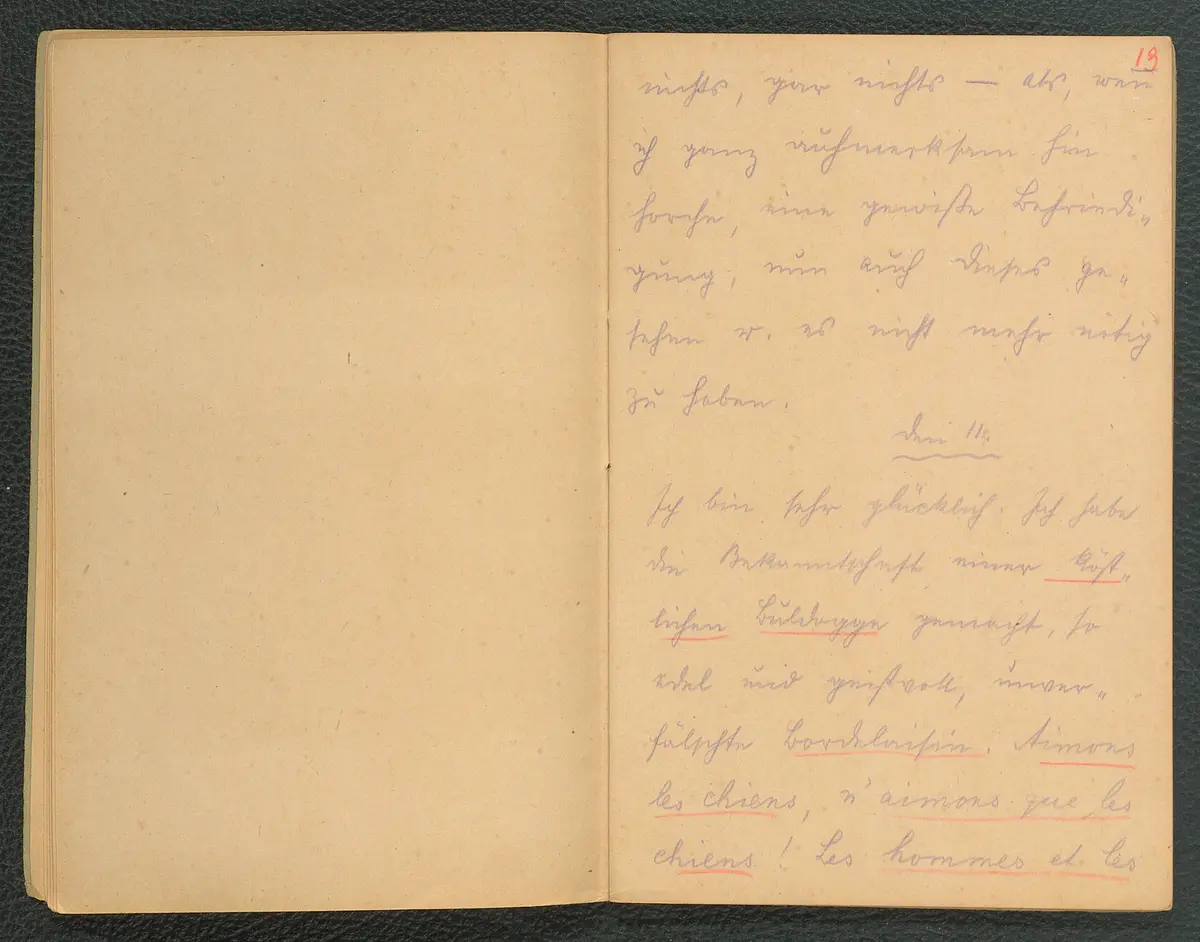 13
nichts, gar nichts — als, wen̄
ich ganz aufmerksam hin
horche, eine gewiße Befriedi„
gung, nun auch dieses ge„
sehen u. es nicht mehr nötig
zu haben.
Den 11.
Ich bin sehr glücklich. Ich habe
die Bekanntschaft einer köst„
lichen Buldogge gemacht, so
edel und geistvoll, unver„
fälschte Bordelaisin. Aimons
les chiens, n'aimons que les
chiens! Les hommes et les